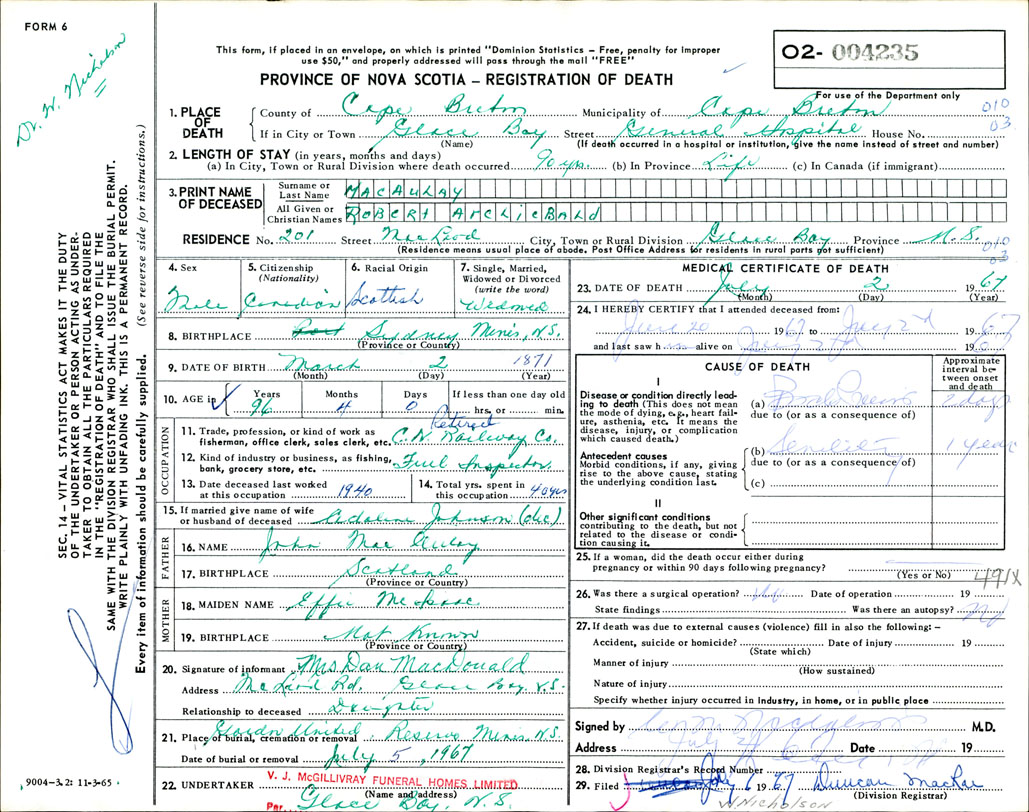 FORM 6
Dr. W. Nicholson
This form, if placed in an envelope, on which is printed "Dominion Statistics – Free, penalty for improper
use $50," and properly addressed will pass through the mail "FREE"
PROVINCE OF NOVA SCOTIA – REGISTRATION OF DEATH
02- 004235
For use of the Department only
1. PLACE OF DEATH
County of Cape Breton Municipality of Cape Breton 010
If in City or Town Glace Bay Street General Hospital House No. 03
(Name) (If death occurred in a hospital or institution, give the name instead of street and number)
2. LENGTH OF STAY (in years, months and days)
(a) In City, Town or Rural Division where death occurred 90 yrs. (b) In Province Life (c) In Canada (if immigrant)
3. PRINT NAME OF DECEASED
Surname or Last Name MACAULAY
All Given or Christian Names ROBERT ARCHIBALD
RESIDENCE No. 201 Street MacLeod City, Town or Rural Division Glace Bay Province N.S. 010
(Residence means usual place of abode. Post Office Address for residents in rural parts not sufficient) 03
4. Sex Male
5. Citizenship (Nationality) Canadian
6. Racial Origin Scottish
7. Single, Married, Widowed or Divorced (write the word) Widowed
8. BIRTHPLACE Sydney Mines, N.S.
(Province or Country)
9. DATE OF BIRTH March 2 1871
(Month) (Day) (Year)
10. AGE in Years 96 Months 4 Days 0 If less than one day old
hrs. or min.
OCCUPATION
11. Trade, profession, or kind of work as fisherman, office clerk, sales clerk, etc. Retired C.N. Railway Co.
12. Kind of industry or business, as fishing, bank, grocery store, etc. Fuel Inspector
13. Date deceased last worked at this occupation 1940
14. Total yrs. spent in this occupation 40 yrs
15. If married give name of wife or husband of deceased Adaline Johnson (dec)
FATHER
16. NAME John Mac Aulay
17. BIRTHPLACE Scotland
(Province or Country)
MOTHER
18. MAIDEN NAME Effie Mc Isaac
19. BIRTHPLACE Not Known
(Province or Country)
20. Signature of informant Mrs Dan MacDonald
Address McLeod Rd. Glace Bay N.S.
Relationship to deceased Daughter
21. Place of burial, cremation or removal United Reserve Mines N.S.
Date of burial or removal July 5, 1967
22. UNDERTAKER V. J. McGILLIVRAY FUNERAL HOMES LIMITED
(Name and address)
Per. Glace Bay N.S.
MEDICAL CERTIFICATE OF DEATH
23. DATE OF DEATH July 2 1967
(Month) (Day) (Year)
24. I HEREBY CERTIFY that I attended deceased from:
June 20 1967 to July 2nd 1967
and last saw h alive on 19
CAUSE OF DEATH
Approximate interval between onset and death
I
Disease or condition directly leading to death (This does not mean the mode of dying, e.g., heart failure, asthenia, etc. It means the disease, injury, or complication which caused death.)
(a) 2 days
due to (or as a consequence of)
Antecedent causes
Morbid conditions, if any, giving rise to the above cause, stating the underlying condition last.
(b) Senility 1 year
due to (or as a consequence of)
(c)
II
Other significant conditions
contributing to the death, but not related to the disease or condition causing it.
25. If a woman, did the death occur either during
pregnancy or within 90 days following pregnancy?
(Yes or No) 491X
26. Was there a surgical operation? Date of operation 19
State findings Was there an autopsy? No
27. If death was due to external causes (violence) fill in also the following:–
Accident, suicide or homicide? Date of injury 19
(State which)
Manner of injury
(How sustained)
Nature of injury
Specify whether injury occurred in Industry, in home, or in public place
Signed by M.D.
Address Date 19
28. Division Registrar's Record Number
29. Filed July 6 1967 Duncan MacRae
(Division Registrar)
W Nicholson
SEC. 14 – VITAL STATISTICS ACT MAKES IT THE DUTY
OF THE UNDERTAKER OR PERSON ACTING AS UNDER-
TAKER TO OBTAIN ALL THE PARTICULARS REQUIRED
IN THE "REGISTRATION OF DEATH" AND TO FILE THE
SAME WITH THE DIVISION REGISTRAR WHO SHALL ISSUE THE BURIAL PERMIT.
WRITE PLAINLY WITH UNFADING INK. THIS IS A PERMANENT RECORD.
Every item of information should be carefully supplied. (See reverse side for instructions.)
9004-3.2: 11-3-65